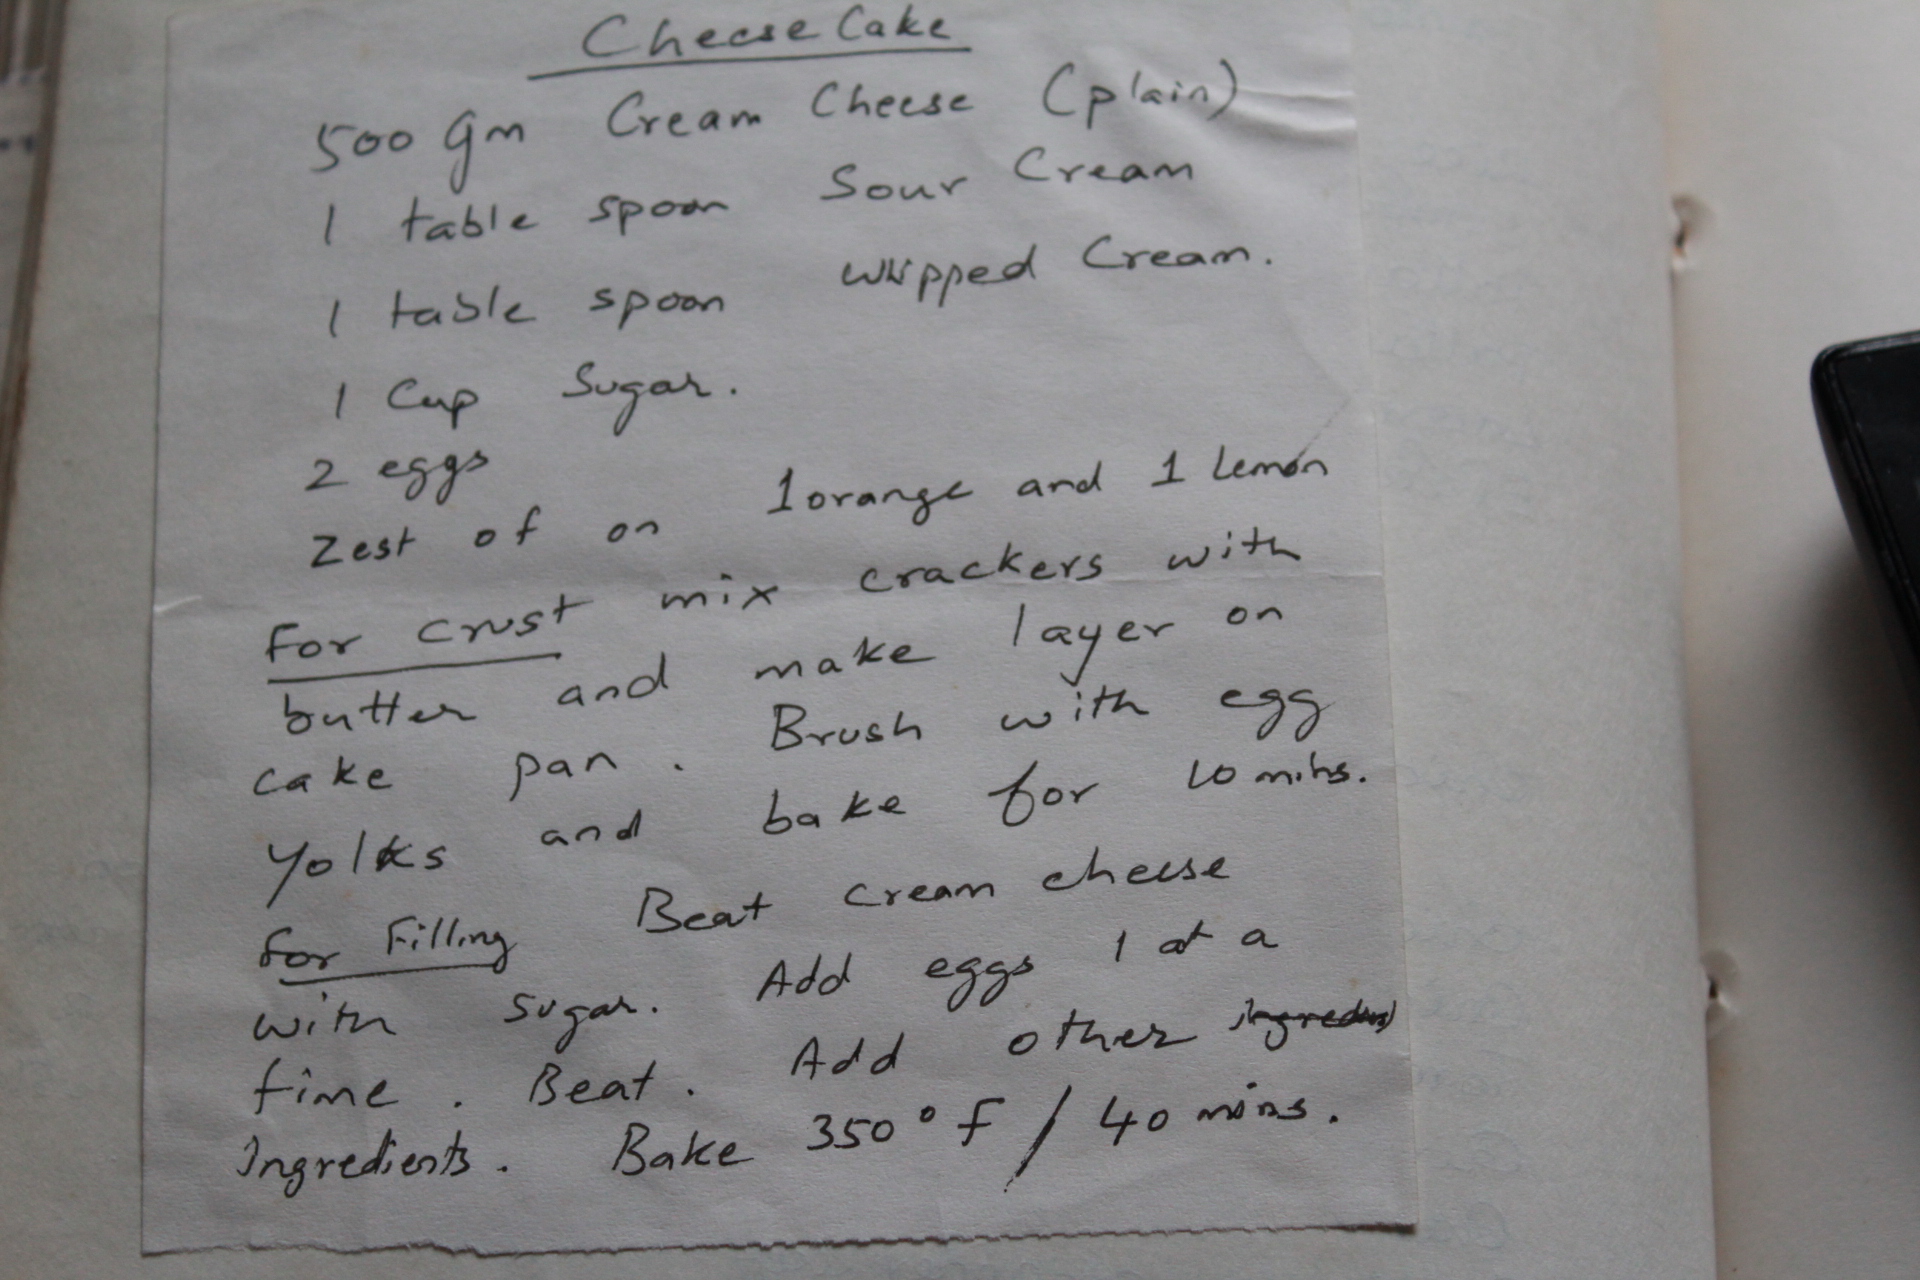 Cheese Cake
500 gm Cream Cheese (plain)
1 table spoon Sour Cream
1 table spoon whipped Cream.
1 Cup Sugar.
2 eggs
Zest of on 1 orange and 1 lemon
For crust mix crackers with
butter and make layer on
cake pan. Brush with egg
yolks and bake for 10 mins.
for Filling Beat cream cheese
with sugar. Add eggs 1 at a
time. Beat. Add other
Ingredients. Bake 350° F / 40 mins.